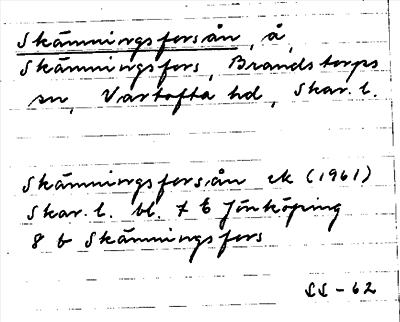 Skämningsforsån, å,
Skämningsfors, Brandstorps
sn, Vartofta hd, Skar. l.
Skämningsforsån ek (1961)
Skar. l. bl. 7 E Jönköping
8 b Skämningsfors
SS-62